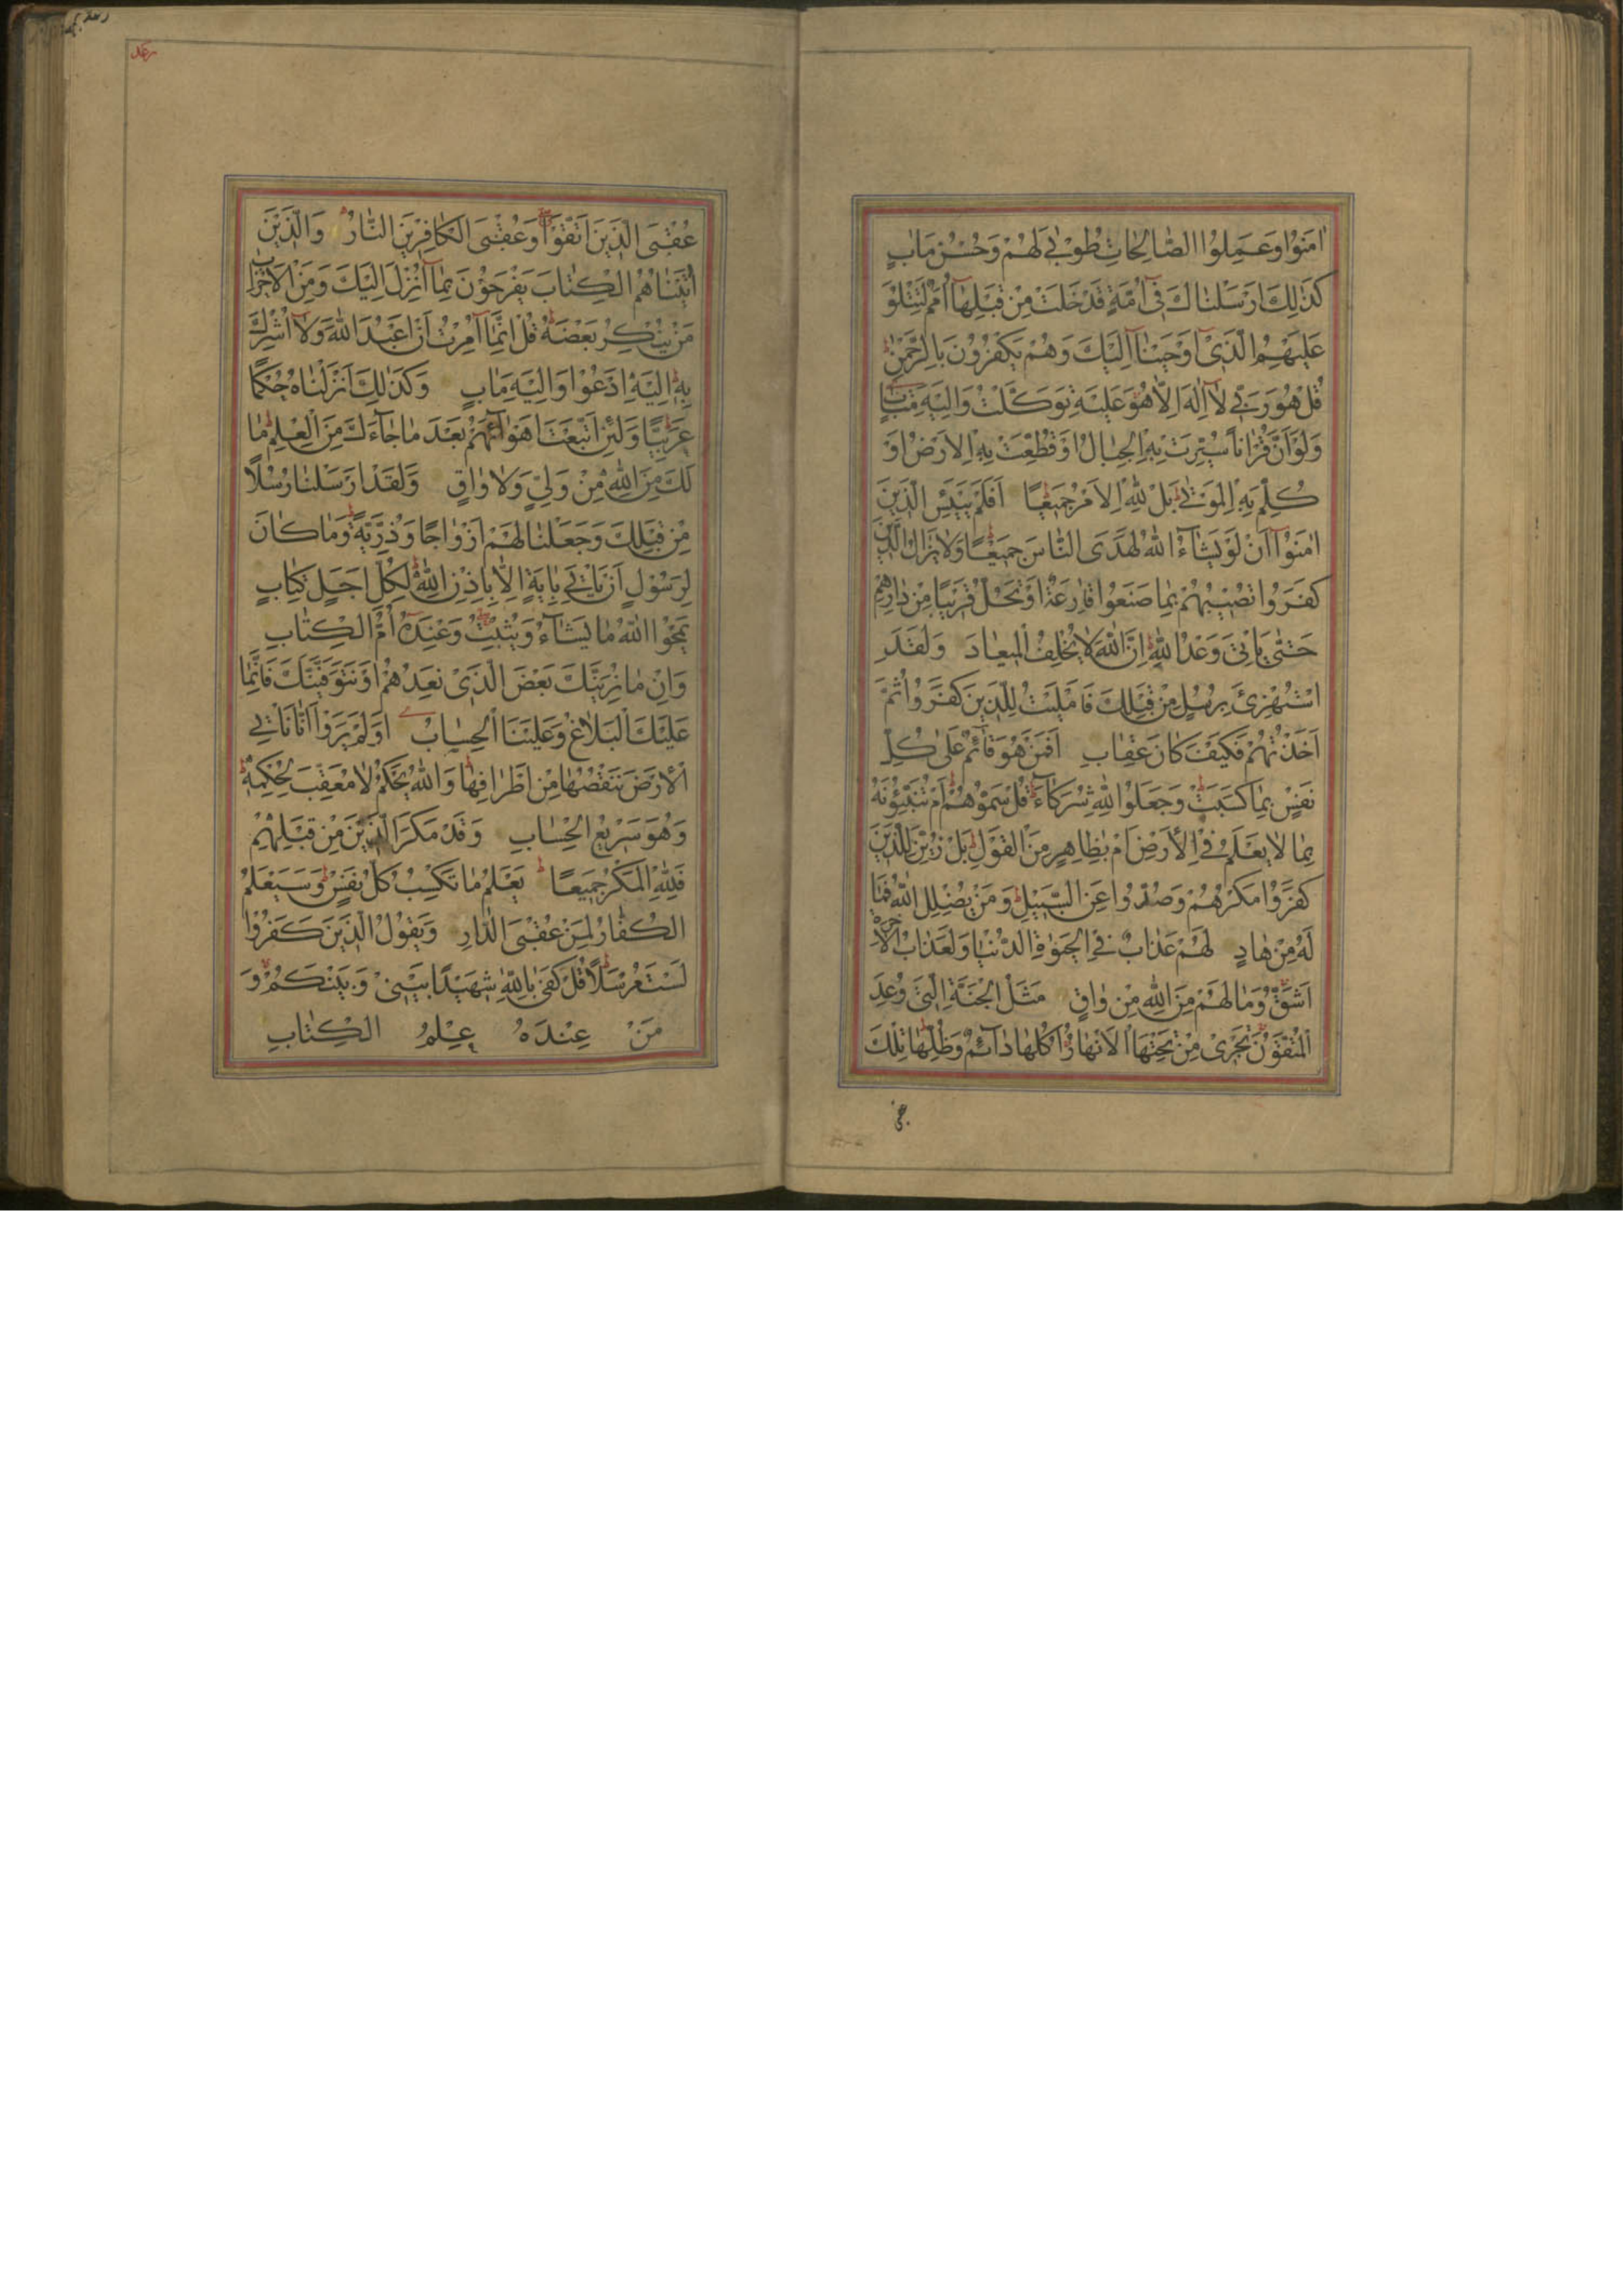 اٰمَنُوا وَعَمِلُوا الصَّالِحَاتِ طُوبٰى لَهُمْ وَحُسْنُ مَاٰبٍ
كَذٰلِكَ اَرْسَلْنَاكَ فِى اُمَّةٍ قَدْ خَلَتْ مِنْ قَبْلِهَا اُمَمٌ لِتَتْلُوَ
عَلَيْهِمُ الَّذِى اَوْحَيْنَا اِلَيْكَ وَهُمْ يَكْفُرُونَ بِالرَّحْمٰنِ
قُلْ هُوَ رَبِّى لَا اِلٰهَ اِلَّا هُوَ عَلَيْهِ تَوَكَّلْتُ وَاِلَيْهِ مَتَابِ
وَلَوْ اَنَّ قُرْاٰنًا سُيِّرَتْ بِهِ الْجِبَالُ اَوْ قُطِّعَتْ بِهِ الْاَرْضُ اَوْ
كُلِّمَ بِهِ الْمَوْتٰى بَلْ لِلّٰهِ الْاَمْرُ جَمِيعًا اَفَلَمْ يَيْئَسِ الَّذِينَ
اٰمَنُوا اَنْ لَوْ يَشَآءُ اللّٰهُ لَهَدَى النَّاسَ جَمِيعًا وَلَا يَزَالُ الَّذِينَ
كَفَرُوا تُصِيبُهُمْ بِمَا صَنَعُوا قَارِعَةٌ اَوْ تَحُلُّ قَرِيبًا مِنْ دَارِهِمْ
حَتّٰى يَاْتِىَ وَعْدُ اللّٰهِ اِنَّ اللّٰهَ لَا يُخْلِفُ الْمِيعَادَ وَلَقَدِ
اسْتُهْزِئَ بِرُسُلٍ مِنْ قَبْلِكَ فَاَمْلَيْتُ لِلَّذِينَ كَفَرُوا ثُمَّ
اَخَذْتُهُمْ فَكَيْفَ كَانَ عِقَابِ اَفَمَنْ هُوَ قَآئِمٌ عَلٰى كُلِّ
نَفْسٍ بِمَا كَسَبَتْ وَجَعَلُوا لِلّٰهِ شُرَكَآءَ قُلْ سَمُّوهُمْ اَمْ تُنَبِّئُونَهُ
بِمَا لَا يَعْلَمُ فِى الْاَرْضِ اَمْ بِظَاهِرٍ مِنَ الْقَوْلِ بَلْ زُيِّنَ لِلَّذِينَ
كَفَرُوا مَكْرُهُمْ وَصُدُّوا عَنِ السَّبِيلِ وَمَنْ يُضْلِلِ اللّٰهُ فَمَا
لَهُ مِنْ هَادٍ لَهُمْ عَذَابٌ فِى الْحَيٰوةِ الدُّنْيَا وَلَعَذَابُ الْاٰخِرَةِ
اَشَقُّ وَمَا لَهُمْ مِنَ اللّٰهِ مِنْ وَاقٍ مَثَلُ الْجَنَّةِ الَّتِى وُعِدَ
الْمُتَّقُونَ تَجْرِى مِنْ تَحْتِهَا الْاَنْهَارُ اُكُلُهَا دَآئِمٌ وَظِلُّهَا تِلْكَ
رعد
عُقْبَى الَّذِينَ اتَّقَوْا وَعُقْبَى الْكَافِرِينَ النَّارُ وَالَّذِينَ
اٰتَيْنَاهُمُ الْكِتَابَ يَفْرَحُونَ بِمَا اُنْزِلَ اِلَيْكَ وَمِنَ الْاَحْزَابِ
مَنْ يُنْكِرُ بَعْضَهُ قُلْ اِنَّمَا اُمِرْتُ اَنْ اَعْبُدَ اللّٰهَ وَلَا اُشْرِكَ
بِهِ اِلَيْهِ اَدْعُوا وَاِلَيْهِ مَاٰبِ وَكَذٰلِكَ اَنْزَلْنَاهُ حُكْمًا
عَرَبِيًّا وَلَئِنِ اتَّبَعْتَ اَهْوَآءَهُمْ بَعْدَ مَا جَآءَكَ مِنَ الْعِلْمِ مَا
لَكَ مِنَ اللّٰهِ مِنْ وَلِىٍّ وَلَا وَاقٍ وَلَقَدْ اَرْسَلْنَا رُسُلًا
مِنْ قَبْلِكَ وَجَعَلْنَا لَهُمْ اَزْوَاجًا وَذُرِّيَّةً وَمَا كَانَ
لِرَسُولٍ اَنْ يَاْتِىَ بِاٰيَةٍ اِلَّا بِاِذْنِ اللّٰهِ لِكُلِّ اَجَلٍ كِتَابٌ
يَمْحُوا اللّٰهُ مَا يَشَآءُ وَيُثْبِتُ وَعِنْدَهُ اُمُّ الْكِتَابِ
وَاِنْ مَا نُرِيَنَّكَ بَعْضَ الَّذِى نَعِدُهُمْ اَوْ نَتَوَفَّيَنَّكَ فَاِنَّمَا
عَلَيْكَ الْبَلَاغُ وَعَلَيْنَا الْحِسَابُ اَوَلَمْ يَرَوْا اَنَّا نَاْتِى
الْاَرْضَ نَنْقُصُهَا مِنْ اَطْرَافِهَا وَاللّٰهُ يَحْكُمُ لَا مُعَقِّبَ لِحُكْمِهِ
وَهُوَ سَرِيعُ الْحِسَابِ وَقَدْ مَكَرَ الَّذِينَ مِنْ قَبْلِهِمْ
فَلِلّٰهِ الْمَكْرُ جَمِيعًا يَعْلَمُ مَا تَكْسِبُ كُلُّ نَفْسٍ وَسَيَعْلَمُ
الْكُفَّارُ لِمَنْ عُقْبَى الدَّارِ وَيَقُولُ الَّذِينَ كَفَرُوا
لَسْتَ مُرْسَلًا قُلْ كَفٰى بِاللّٰهِ شَهِيدًا بَيْنِى وَبَيْنَكُمْ وَ
مَنْ عِنْدَهُ عِلْمُ الْكِتَابِ